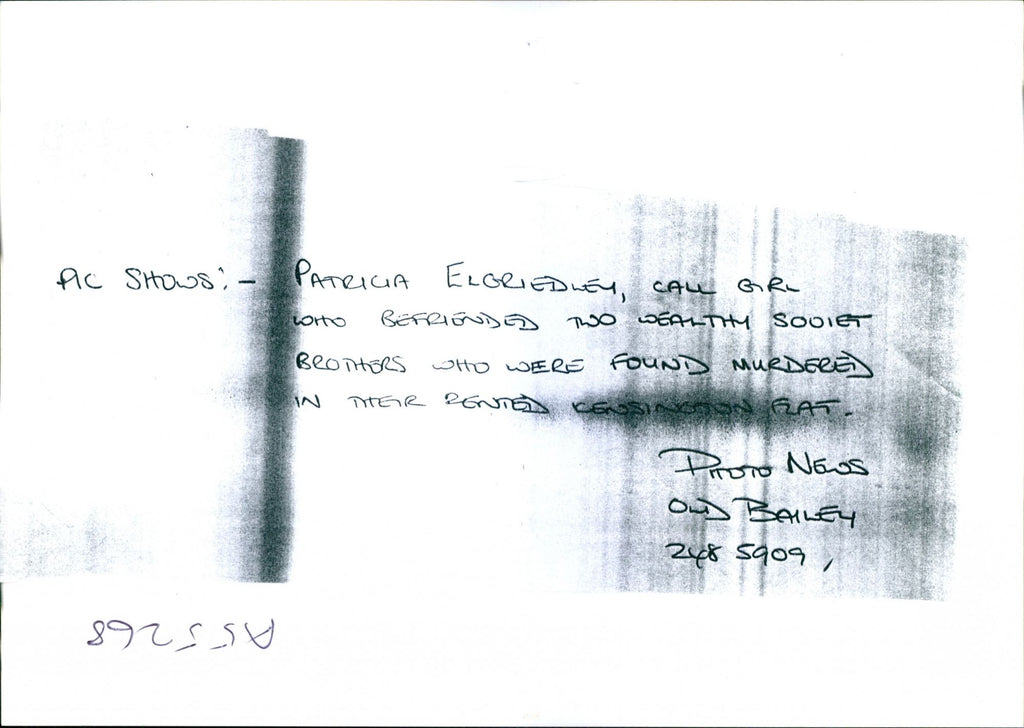 PIC SHOWS:- PATRICIA ELGRIEDLEY, CALL GIRL
WHO BEFRIENDED TWO WEALTHY SOVIET
BROTHERS WHO WERE FOUND MURDERED
IN THEIR RENTED KENSINGTON FLAT.
PHOTO NEWS
OLD BAILEY
248 5909,
A55268